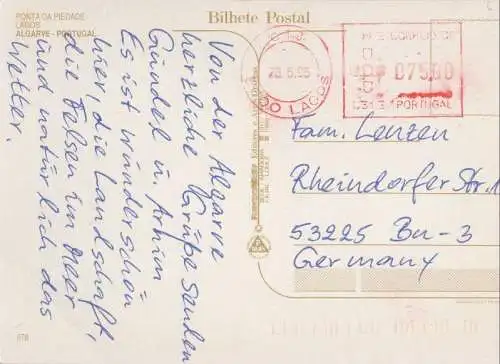 PONTA DA PIEDADE
LAGOS
ALGARVE - PORTUGAL
Bilhete Postal
Von der Algarve
herzliche Grüße senden
Gündel u. Achim
Es ist wunderschön
hier, die Landschaft,
die Felsen im Meer
und natürlich das
Wetter.
LAGOS
075,00
PORTUGAL
Fam. Lenzen
Rheindorfer Str. 1
53225 Bn-3
Germany
878